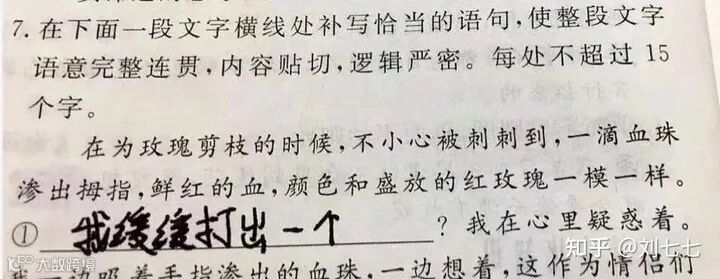 7. 在下面一段文字横线处补写恰当的语句,使整段文字
语意完整连贯,内容贴切,逻辑严密。每处不超过 15
个字。
在为玫瑰剪枝的时候,不小心被刺刺到,一滴血珠
渗出拇指,鲜红的血,颜色和盛放的红玫瑰一模一样。
① 我缓缓打出一个 ? 我在心里疑惑着。
吸着手指渗出的血珠,一边想着,这作为情侣们
知乎 @刘七七
大数跨境